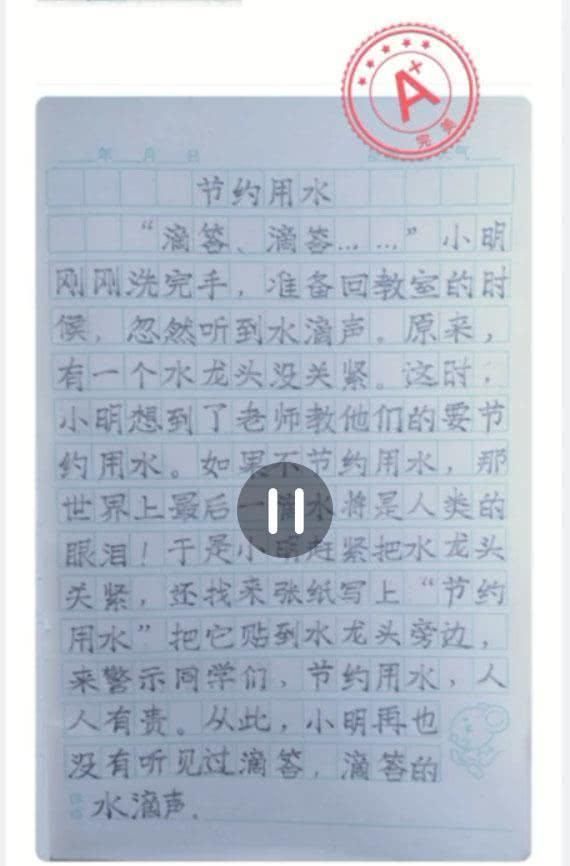 A+
完美
年 月 日
气
节约用水
“滴答、滴答……”小明
刚刚洗完手，准备回教室的时
候，忽然听到水滴声。原来，
有一个水龙头没关紧。这时，
小明想到了老师教他们的要节
约用水。如果不节约用水，那
世界上最后一滴水将是人类的
眼泪！于是小明赶紧把水龙头
关紧，还找来张纸写上“节约
用水”把它贴到水龙头旁边，
来警示同学们，节约用水，人
人有责。从此，小明再也
没有听见过滴答，滴答的
水滴声。